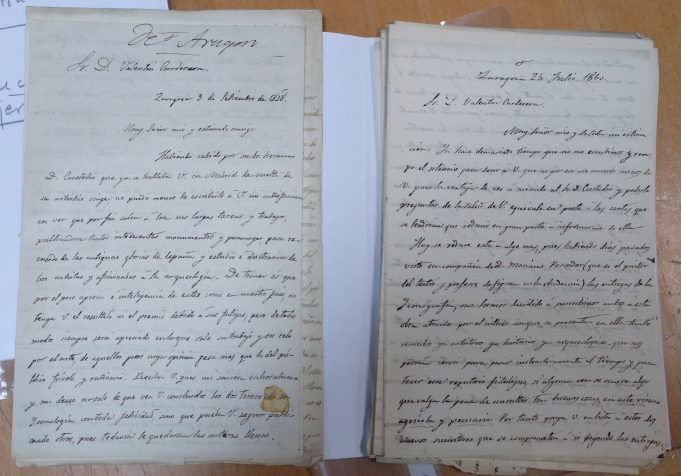 De Aragon
Sr. D. Valentin Carderera.
Zaragoza 3 de Setiembre de 1858.
Muy Señor mio y estimado amigo.
Habiendo sabido por su hermano
D. Custodio que ya se hallaba V. en Madrid de vuelta de
su artistico viage no puedo menos de escribirle á V. mi satisfaccion
en ver que por fin salen á luz sus largas tareas y trabajos,
publicandose tantos interesantes monumentos y personages para re-
cuerdo de las antiguas glorias de España y estudio é ilustracion de
los artistas y aficionados á la arqueologia. De temer es que
por el poco aprecio é inteligencia de estas cosas en nuestro pais no
tenga V. el resultado ni el premio debido á sus fatigas, pero de todos
modos siempre sera apreciado en lo que vale su trabajo y su celo
por el arte de aquellos pocos cuya opinion pesa mas que la del pú-
blico frívolo y rutinario. Reciba V. pues mi sincera enhorabuena
y mi deseo no solo de que vea V. concluidos los dos tomos de su
Iconologia con toda felicidad sino que pueda V. seguir publi-
cando otros, pues todavia le quedaran las carteras llenas.
Zaragoza 23 Julio 1860.
Sr. D. Valentin Carderera.
Muy Señor mio y de toda mi estima-
cion. Ya hace demasiado tiempo que no nos escribimos y rom-
po el silencio para decir á V. que no por eso me acuerdo menos de
V. pues la ventaja de ver á menudo al Sr. D. Custodio y poderle
preguntar de la salud de V. equivale en parte á las cartas que
se tendrian que reducir en gran parte á informarme de ella.
Hoy se reduce esta á algo mas, pues habiendo dias pasados
visto en compañia de D. Mariano Pescador (que es el pintor
del teatro, y profesor de figura en la Academia) las entregas de la
Iconografia, nos hemos decidido á suscribirnos ambos á esta
obra atraidos por el interes con que se presenta en ella tanto
recuerdo ya artistico ya historico ya arqueologico que nos
podran servir para pasar instructivamente el tiempo y para
tener ese repertorio si alguna vez se mueve algo
que valga la pena de consultar tan buenas cosas, en este rincon
agricola y pecuario. Por tanto ponga V. en lista á estos dos
nuevos suscritores que se comprometen á ir pagando las entregas,